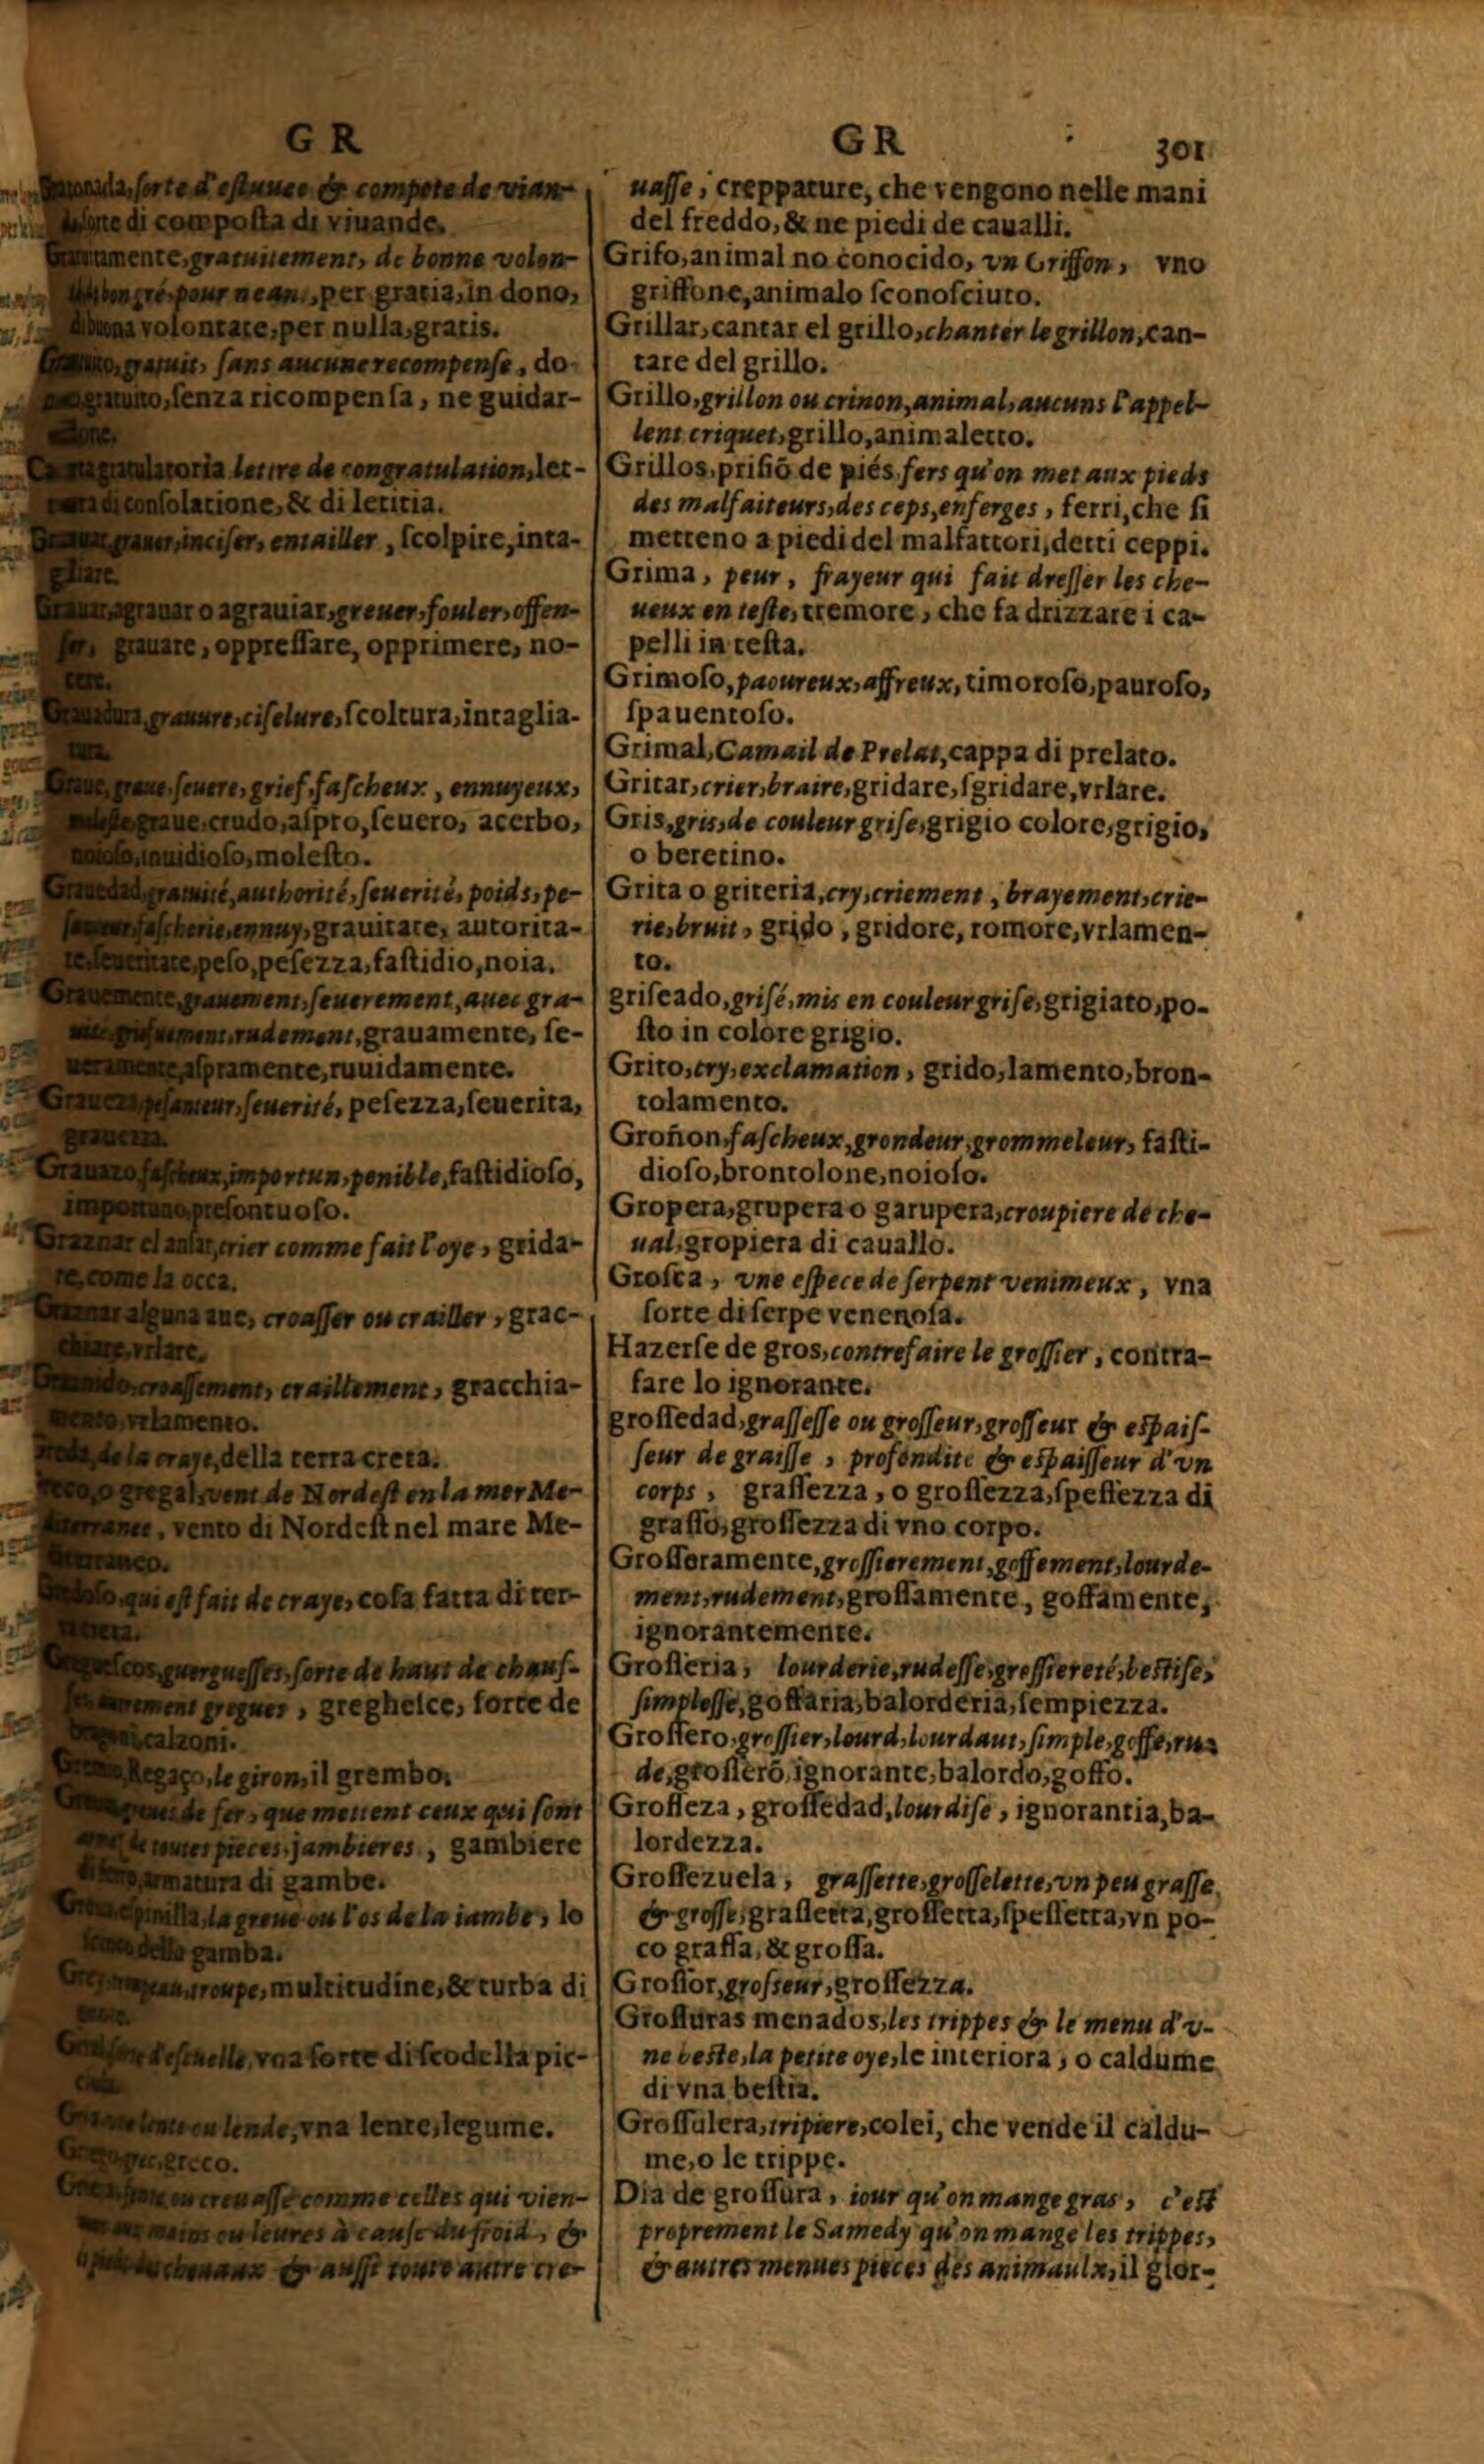 GR
sorte d'estuuee & compote de vian-
di composta di viuande.
gratuitement, de bonne volon-
pour neant, per gratia, in dono,
volontate, per nulla, gratis.
gratuit, sans aucune recompense, do-
gratuito, senza ricompensa, ne guidar-
done.
gratulatoria lettre de congratulation, let-
di consolatione, & di letitia.
Grauar, grauer, inciser, entailler, scolpire, inta-
gliare.
Grauar, agrauar o agrauiar, greuer, fouler, offen-
ser, grauare, oppressare, opprimere, no-
cere.
Grauadura, grauure, ciselure, scoltura, intaglia-
tura.
Graue, graue, seuere, grief, fascheux, ennuyeux,
graue, crudo, aspro, seuero, acerbo,
noioso, inuidioso, molesto.
Grauedad, grauité, authorité, seuerité, poids, pe-
fascherie, ennuy, grauitate, autorita-
te, seueritate, peso, pesezza, fastidio, noia.
Grauemente, grauement, seuerement, auec gra-
rudement, grauamente, se-
ueramente, aspramente, ruuidamente.
Graueza, pesanteur, seuerité, pesezza, seuerita,
grauezza.
fascheux, importun, penible, fastidioso,
importuno, presontuoso.
Graznar el ansar, crier comme fait l'oye, grida-
re, come la occa.
Graznar alguna aue, croasser ou crailler, grac-
chiare, vrlare.
Graznido, croassement, craillement, gracchia-
mento, vrlamento.
Greda, de la craye, della terra creta.
Greco, o gregal, vent de Nordest en la mer Me-
diterranee, vento di Nordest nel mare Me-
diterraneo.
qui est fait de craye, cosa fatta di ter-
creta.
guerguesses, sorte de haut de chaus-
gregues, greghesce, sorte de
calzoni.
Regaço, le giron, il grembo.
de fer, que mettent ceux qui sont
de toutes pieces, jambieres, gambiere
armatura di gambe.
espinilla, la greue ou l'os de la iambe, lo
della gamba.
troupe, multitudine, & turba di
d'escuelle, vna sorte di scodella pic-
ou lende, vna lente, legume.
grec, greco.
ou creuasse comme celles qui vien-
mains ou leures à cause du froid, &
cheuaux & aussi toute autre cre-
GR 301
uasse, creppature, che vengono nelle mani
del freddo, & ne piedi de caualli.
Grifo, animal no conocido, vn Griffon, vno
griffone, animalo sconosciuto.
Grillar, cantar el grillo, chanter le grillon, can-
tare del grillo.
Grillo, grillon ou crinon, animal, aucuns l'appel-
lent criquet, grillo, animaletto.
Grillos, prisiõ de piés, fers qu'on met aux pieds
des malfaiteurs, des ceps, enferges, ferri, che si
metteno a piedi del malfattori, detti ceppi.
Grima, peur, frayeur qui fait dresser les che-
ueux en teste, tremore, che fa drizzare i ca-
pelli in testa.
Grimoso, paoureux, affreux, timoroso, pauroso,
spauentoso.
Grimal, Camail de Prelat, cappa di prelato.
Gritar, crier, braire, gridare, sgridare, vrlare.
Gris, gris, de couleur grise, grigio colore, grigio,
o beretino.
Grita o griteria, cry, criement, brayement, crie-
rie, bruit, grido, gridore, romore, vrlamen-
to.
griseado, grisé, mis en couleur grise, grigiato, po-
sto in colore grigio.
Grito, cry, exclamation, grido, lamento, bron-
tolamento.
Groñon, fascheux, grondeur, grommeleur, fasti-
dioso, brontolone, noioso.
Gropera, grupera o garupera, croupiere de che-
ual, gropiera di cauallo.
Grosca, vne espece de serpent venimeux, vna
sorte di serpe venenosa.
Hazerse de gros, contrefaire le grossier, contra-
fare lo ignorante.
grossedad, grassesse ou grosseur, grosseur & espais-
seur de graisse, profondite & espaisseur d'vn
corps, grassezza, o grossezza, spessezza di
grasso, grossezza di vno corpo.
Grosseramente, grossierement, goffement, lourde-
ment, rudement, grossamente, goffamente,
ignorantemente.
Grosseria, lourderie, rudesse, grossiereté, bestise,
simplesse, goffaria, balorderia, sempiezza.
Grossero, grossier, lourd, lourdaut, simple, goffe, ru-
de, grosserõ, ignorante, balordo, goffo.
Grosseza, grossedad, lourdise, ignorantia, ba-
lordezza.
Grossezuela, grassette, grosselette, vn peu grasse
& grosse, grassetta, grossetta, spessetta, vn po-
co grassa, & grossa.
Grossor, grosseur, grossezza.
Grossuras menudos, les trippes & le menu d'v-
ne beste, la petite oye, le interiora, o caldume
di vna bestia.
Grossulera, tripiere, colei, che vende il caldu-
me, o le trippe.
Dia de grossura, iour qu'on mange gras, c'est
proprement le Samedy qu'on mange les trippes,
& autres menues pieces des animaulx, il gior-